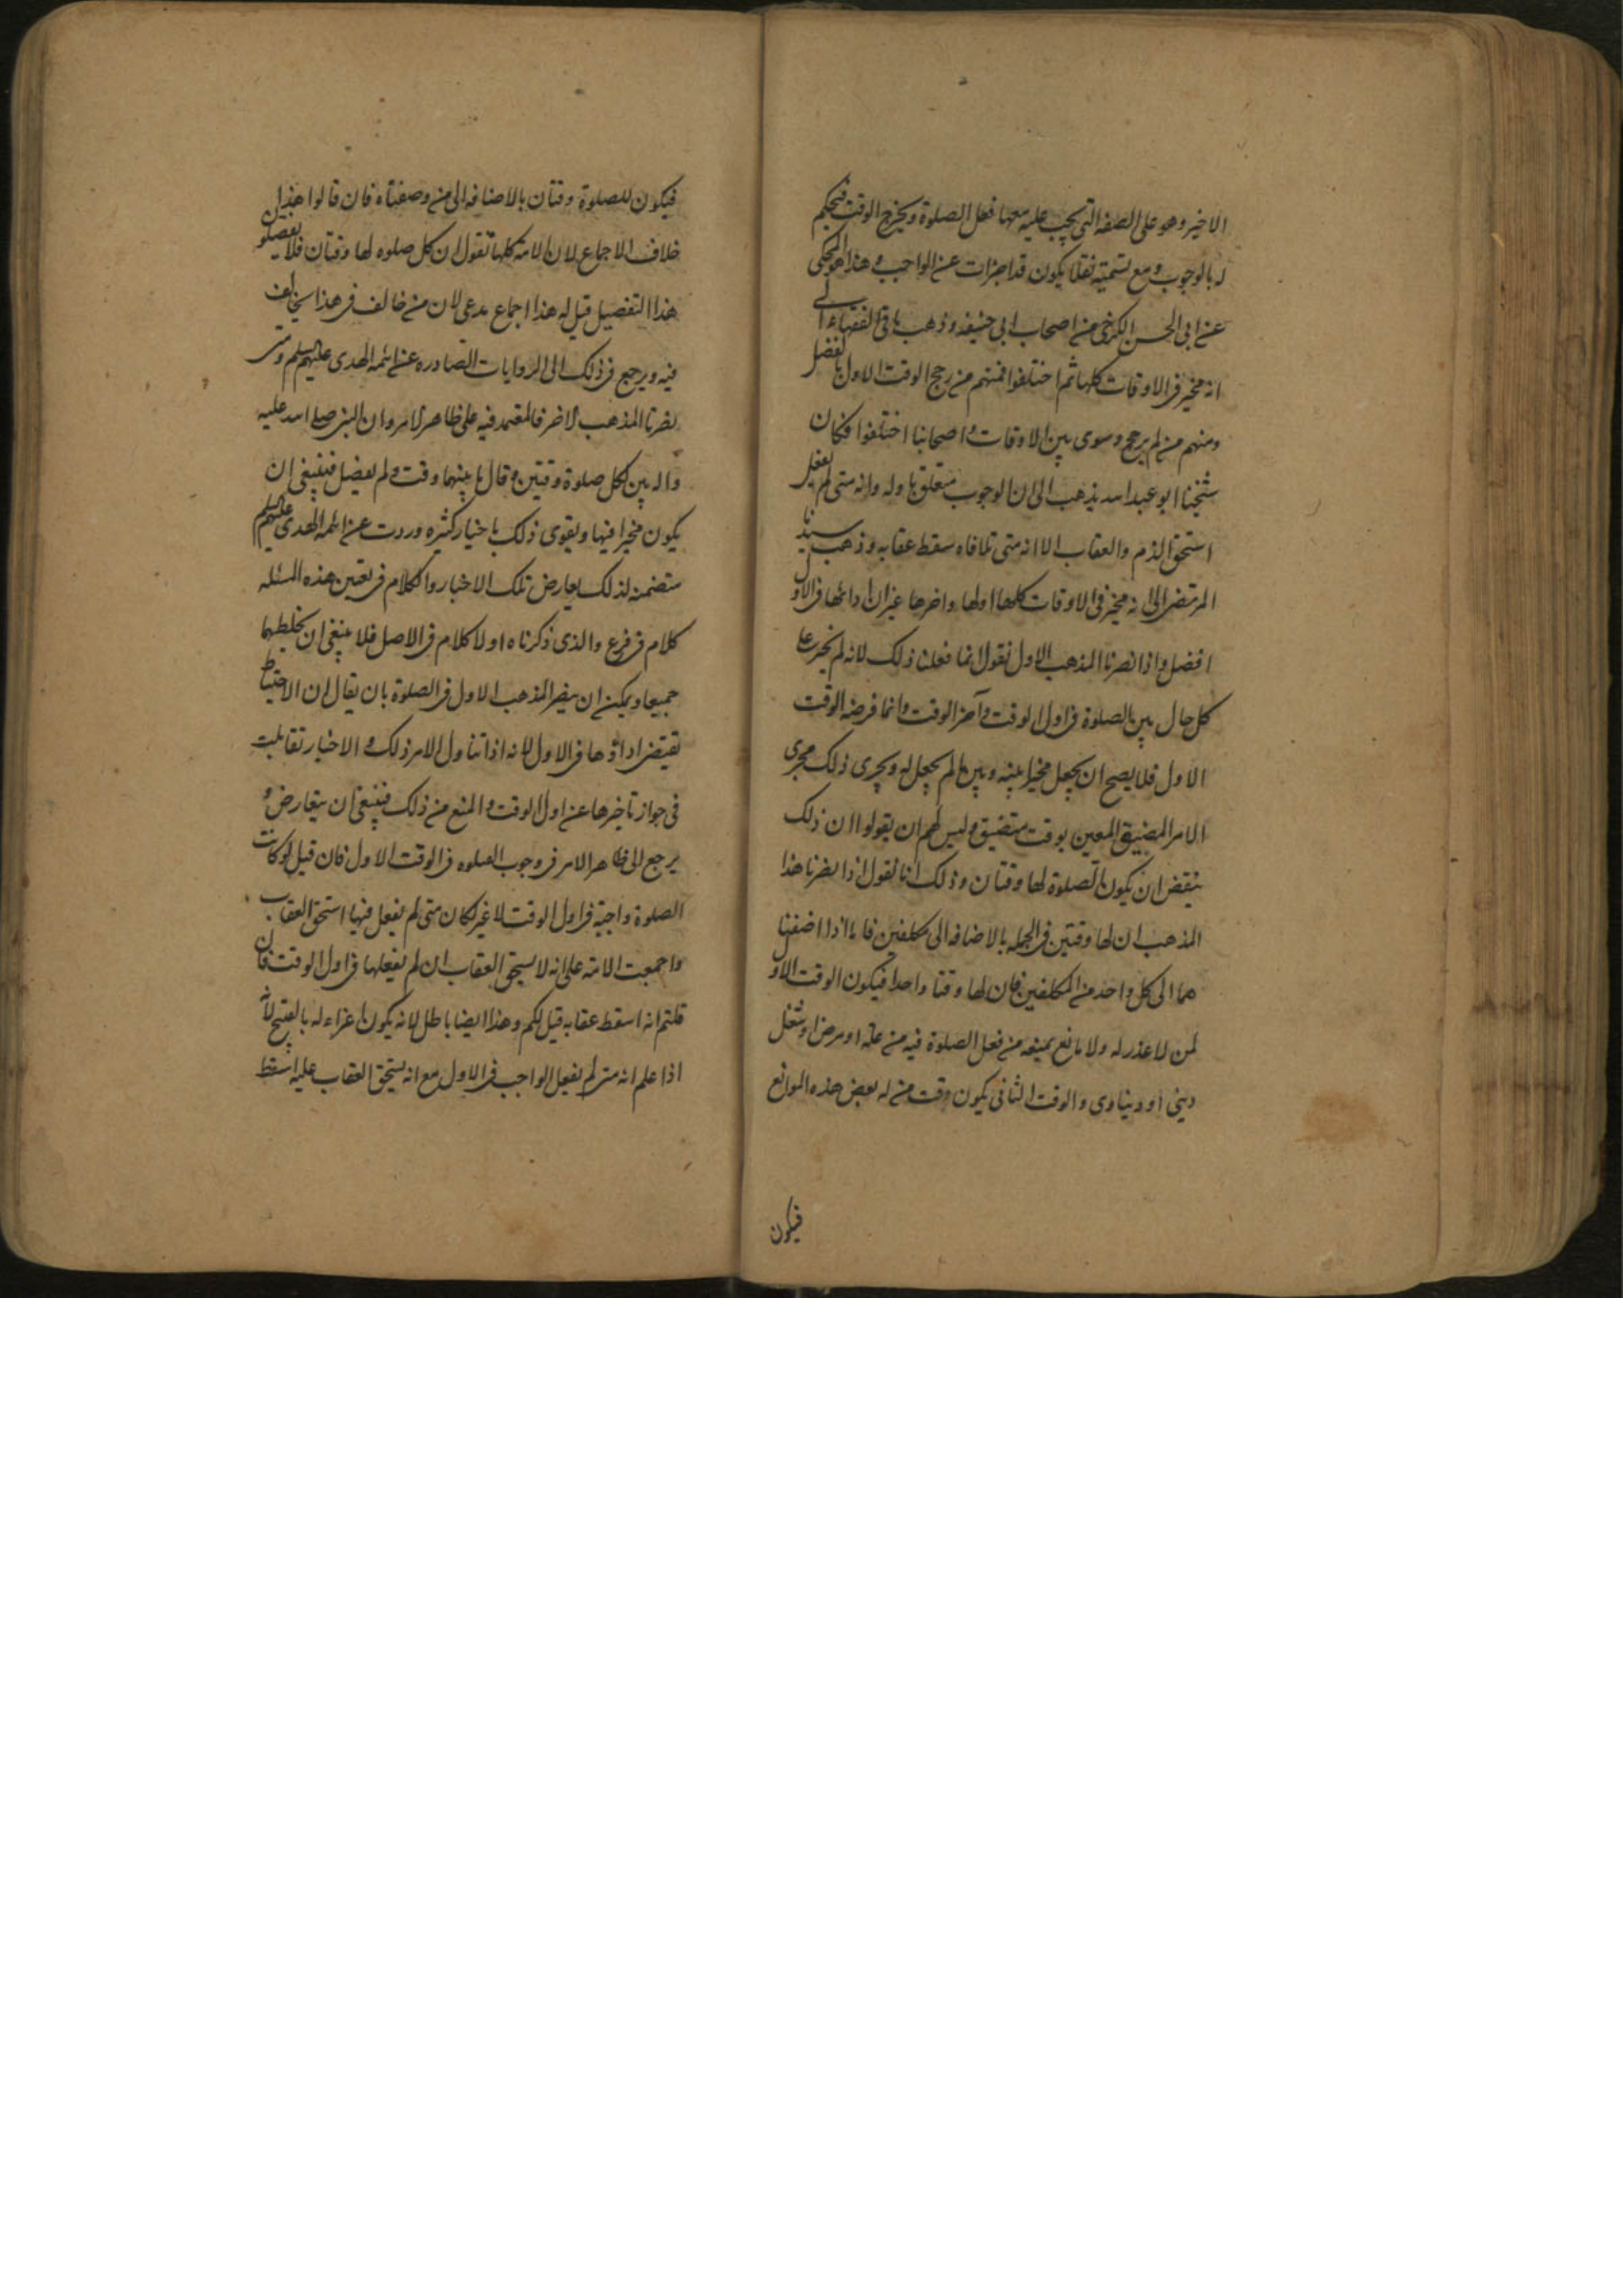 الاخير وهو على الصفه التى يجب عليه معها فعل الصلوة ويخرج الوقت فيحكم
له بالوجوب ومع تسميته نفلا يكون قد اجزات عن الواجب وهذا هو المحكى
عن ابى الحسن الكرخى من اصحاب ابى حنيفه وذهب باقى الفقهاء الى
انه مخير فى الاوقات كلها ثم اختلفوا فمنهم من رجح الوقت الاول بالفضل
ومنهم من لم يرجح وسوى بين الاوقات واصحابنا اختلفوا فكان
شيخنا ابو عبد الله يذهب الى ان الوجوب متعلق باوله وانه متى لم يفعل
استحق الذم والعقاب الا انه متى تلافاه سقط عقابه وذهب سيدنا
المرتضى الى انه مخير فى الاوقات كلها اولها واخرها غير ان ادائها فى الاول
افضل واذا نصرنا المذهب الاول نقول انما فعلنا ذلك لانه لم يخير على
كل حال بين الصلوة فى اول الوقت وآخر الوقت وانما فرضه الوقت
الاول فلا يصح ان يجعل مخيرا بينه وبين ما لم يجعل له ويجرى ذلك مجرى
الامر المضيق المعين بوقت متضيق وليس لهم ان يقولوا ان ذلك
ينقض ان يكون الصلوة لها وقتان وذلك انا نقول اذا نصرنا هذا
المذهب ان لها وقتين فى الجمله بالاضافه الى مكلفين فاما اذا اضفنا
هما الى كل واحد من المكلفين فان لها وقتا واحدا فيكون الوقت الاول
لمن لا عذر له ولا مانع يمنعه من فعل الصلوة فيه من علة او مرض او شغل
دينى او دنياوى والوقت الثانى يكون وقت من له بعض هذه الموانع
فيكون
فيكون للصلوة وقتان بالاضافه الى من وصفناه فان قالوا هذا
خلاف الاجماع لان الامة كلها تقول ان كل صلوه لها وقتان فلا يفصلون
هذا التفصيل قيل له هذا اجماع مدعى لان من خالف فى هذا يخالف
فيه ويرجع فى ذلك الى الروايات الصادره عن ائمه الهدى عليهم السلم ومتى
نصرنا المذهب الاخر فالمعتمد فيه على ظاهر الامر وان النبى صلى الله عليه
واله بين لكل صلوة وقتين وقال ما بينهما وقت ولم يفضل فينبغى ان
يكون مخيرا فيها ويقوى ذلك باخبار كثيره وردت عن ائمه الهدى عليهم السلم
متضمنه لذلك يعارض تلك الاخبار والكلام فى تعين هذه المسئله
كلام فى فرع والذى ذكرناه اولا كلام فى الاصل فلا ينبغى ان يخلطهما
جميعا ويمكن ان ينصر المذهب الاول فى الصلوة بان يقال ان الاحتياط
تقتضى اداؤها فى الاول لانه اذا تناول الامر ذلك والاخبار تقابلت
فى جواز تاخيرها عن اول الوقت والمنع من ذلك فينبغى ان يتعارض و
يرجع الى ظاهر الامر فى وجوب الصلوه فى الوقت الاول فان قيل لو كانت
الصلوة واجبة فى اول الوقت لا غير لكان متى لم يفعل فيها استحق العقاب
واجمعت الامة على انه لا يستحق العقاب ان لم يفعلها فى اول الوقت فان
قلتم انه اسقط عقابه قيل لكم وهذا ايضا باطل لانه يكون اغراء له بالقبيح لانه
اذا علم انه متى لم يفعل الواجب فى الاول مع انه يستحق العقاب عليه اسقط